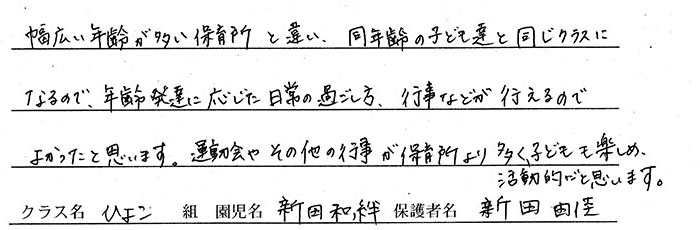 幅広い年齢が多い保育所と違い、同年齢の子ども達と同じクラスに
なるので、年齢発達に応じた日常の過ごし方、行事などが行えるので
よかったと思います。運動会やその他の行事が保育所より多く、子どもも楽しめ、
活動的だと思います。
クラス名 ひよこ 組 園児名 新田和絆 保護者名 新田由佳